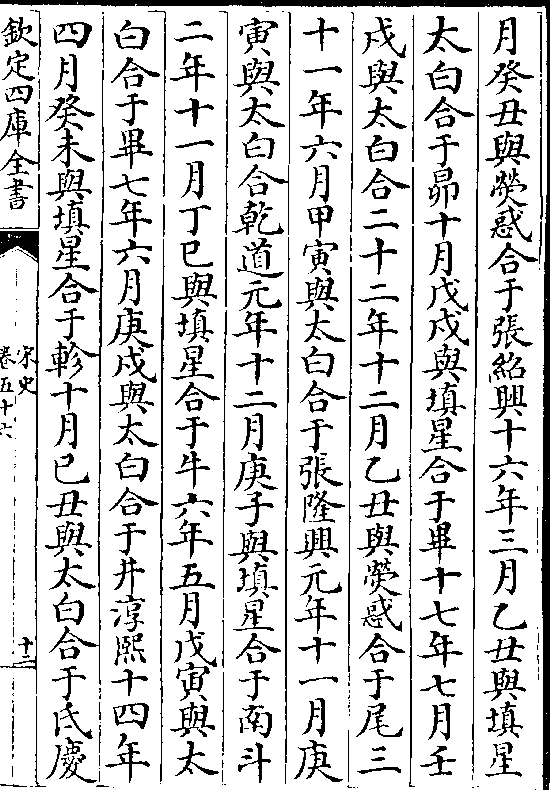 月癸丑與熒惑合于張紹興十六年三月乙丑與填星
太白合于昴十月戊戌與填星合于畢十七年七月壬
戌與太白合二十二年十二月乙丑與熒惑合于尾三
十一年六月甲寅與太白合于張隆興元年十一月庚
寅與太白合乾道元年十二月庚子與填星合于南斗
二年十一月丁巳與填星合于牛六年五月戊寅與太
白合于畢七年六月庚戌與太白合于井淳熙十四年
四月癸未與填星合于軫十月已丑與太白合于氐慶
欽定四庫全書
宋史
卷五十六
十二